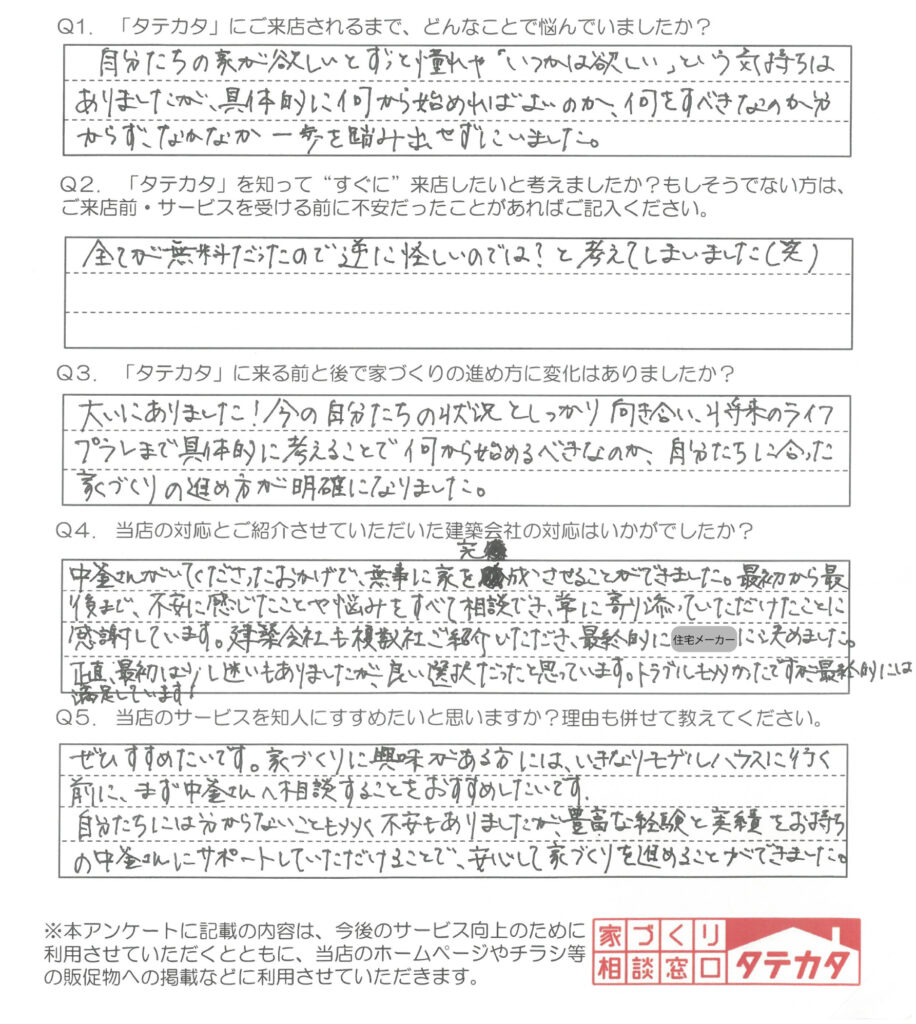 Q1. 「タテカタ」にご来店されるまで、どんなことで悩んでいましたか？
自分たちの家が欲しいとずっと憧れや"いつかは欲しい"という気持ちは
ありましたが、具体的に何から始めればよいのか、何をすべきなのか分
からず、なかなか一歩を踏み出せずにいました。
Q2. 「タテカタ」を知って“すぐに”来店したいと考えましたか？もしそうでない方は、
ご来店前・サービスを受ける前に不安だったことがあればご記入ください。
全てが無料だったので逆に怪しいのでは？と考えてしまいました(笑)
Q3. 「タテカタ」に来る前と後で家づくりの進め方に変化はありましたか？
大いにありました！今の自分たちの状況としっかり向き合い、将来のライフ
プランまで具体的に考えることで何から始めるべきなのか、自分たちに合った
家づくりの進め方が明確になりました。
Q4. 当店の対応とご紹介させていただいた建築会社の対応はいかがでしたか？
中釜さんがいてくださったおかげで、無事に家を完成させることができました。最初から最
後まで、不安に感じたことや悩みをすべて相談でき、常に寄り添っていただけたことに
感謝しています。建築会社も複数社ご紹介いただき、最終的に住宅メーカーに決めました。
正直、最初は少し迷いもありましたが、良い選択だったと思っています。トラブルも多かったですが最終的には
満足しています！
Q5. 当店のサービスを知人にすすめたいと思いますか？理由も併せて教えてください。
ぜひすすめたいです。家づくりに興味がある方には、いきなりモデルハウスに行く
前に、まず中釜さんへ相談することをおすすめしたいです。
自分たちには分からないことも多く不安もありましたが、豊富な経験と実績をお持ち
の中釜さんにサポートしていただけることで、安心して家づくりを進めることができました。
※本アンケートに記載の内容は、今後のサービス向上のために
利用させていただくとともに、当店のホームページやチラシ等
の販促物への掲載などに利用させていただきます。
家づくり
相談窓口
タテカタ